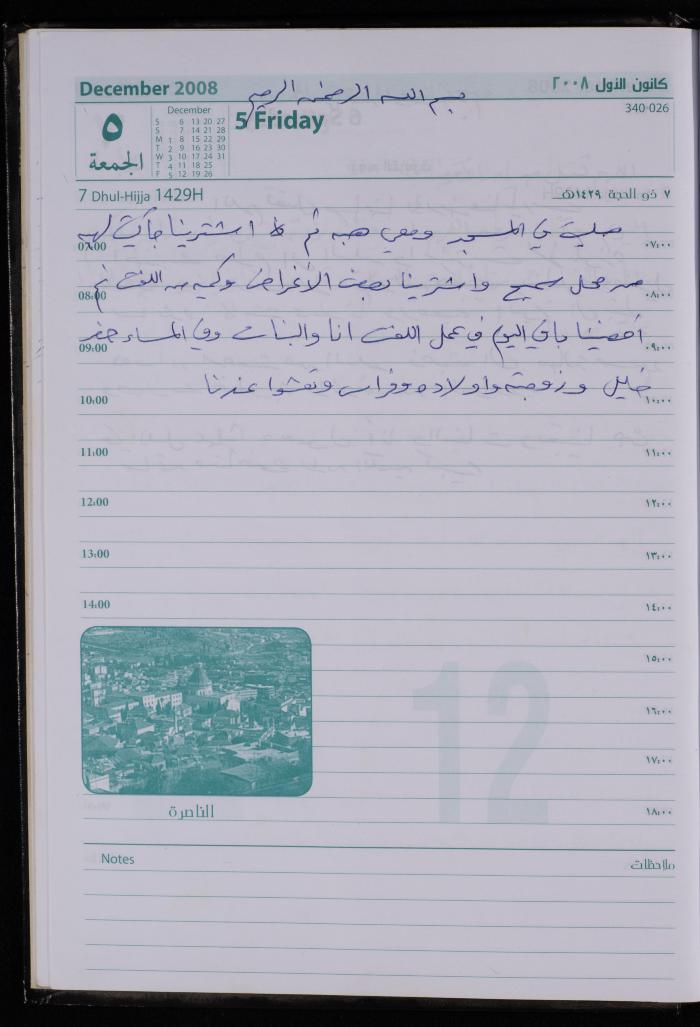 December 2008
كانون الأول ٢٠٠٨
بسم الله الرحمن الرحيم
340-026
5 Friday
٥
الجمعة
December
S 6 13 20 27
S 7 14 21 28
M 1 8 15 22 29
T 2 9 16 23 30
W 3 10 17 24 31
T 4 11 18 25
F 5 12 19 26
7 Dhul-Hijja 1429H
٧ ذو الحجة ١٤٢٩هـ
صليت في المسجد ومعي هبه ثم اشترينا جاكيت لهبه
07:00 ٠٧:٠٠
من محل سميح واشترينا بعض الأغراض وكميه من اللفت ثم
08:00 ٠٨:٠٠
أمضينا باقي اليوم في عمل اللفت انا والبنات وفي المساء حضر
09:00 ٠٩:٠٠
خليل وزوجته واولاده وفراس وتعشوا عندنا
10:00 ١٠:٠٠
11:00 ١١:٠٠
12:00 ١٢:٠٠
13:00 ١٣:٠٠
14:00 ١٤:٠٠
١٥:٠٠
١٦:٠٠
١٧:٠٠
١٨:٠٠
12
الناصرة
Notes
ملاحظات